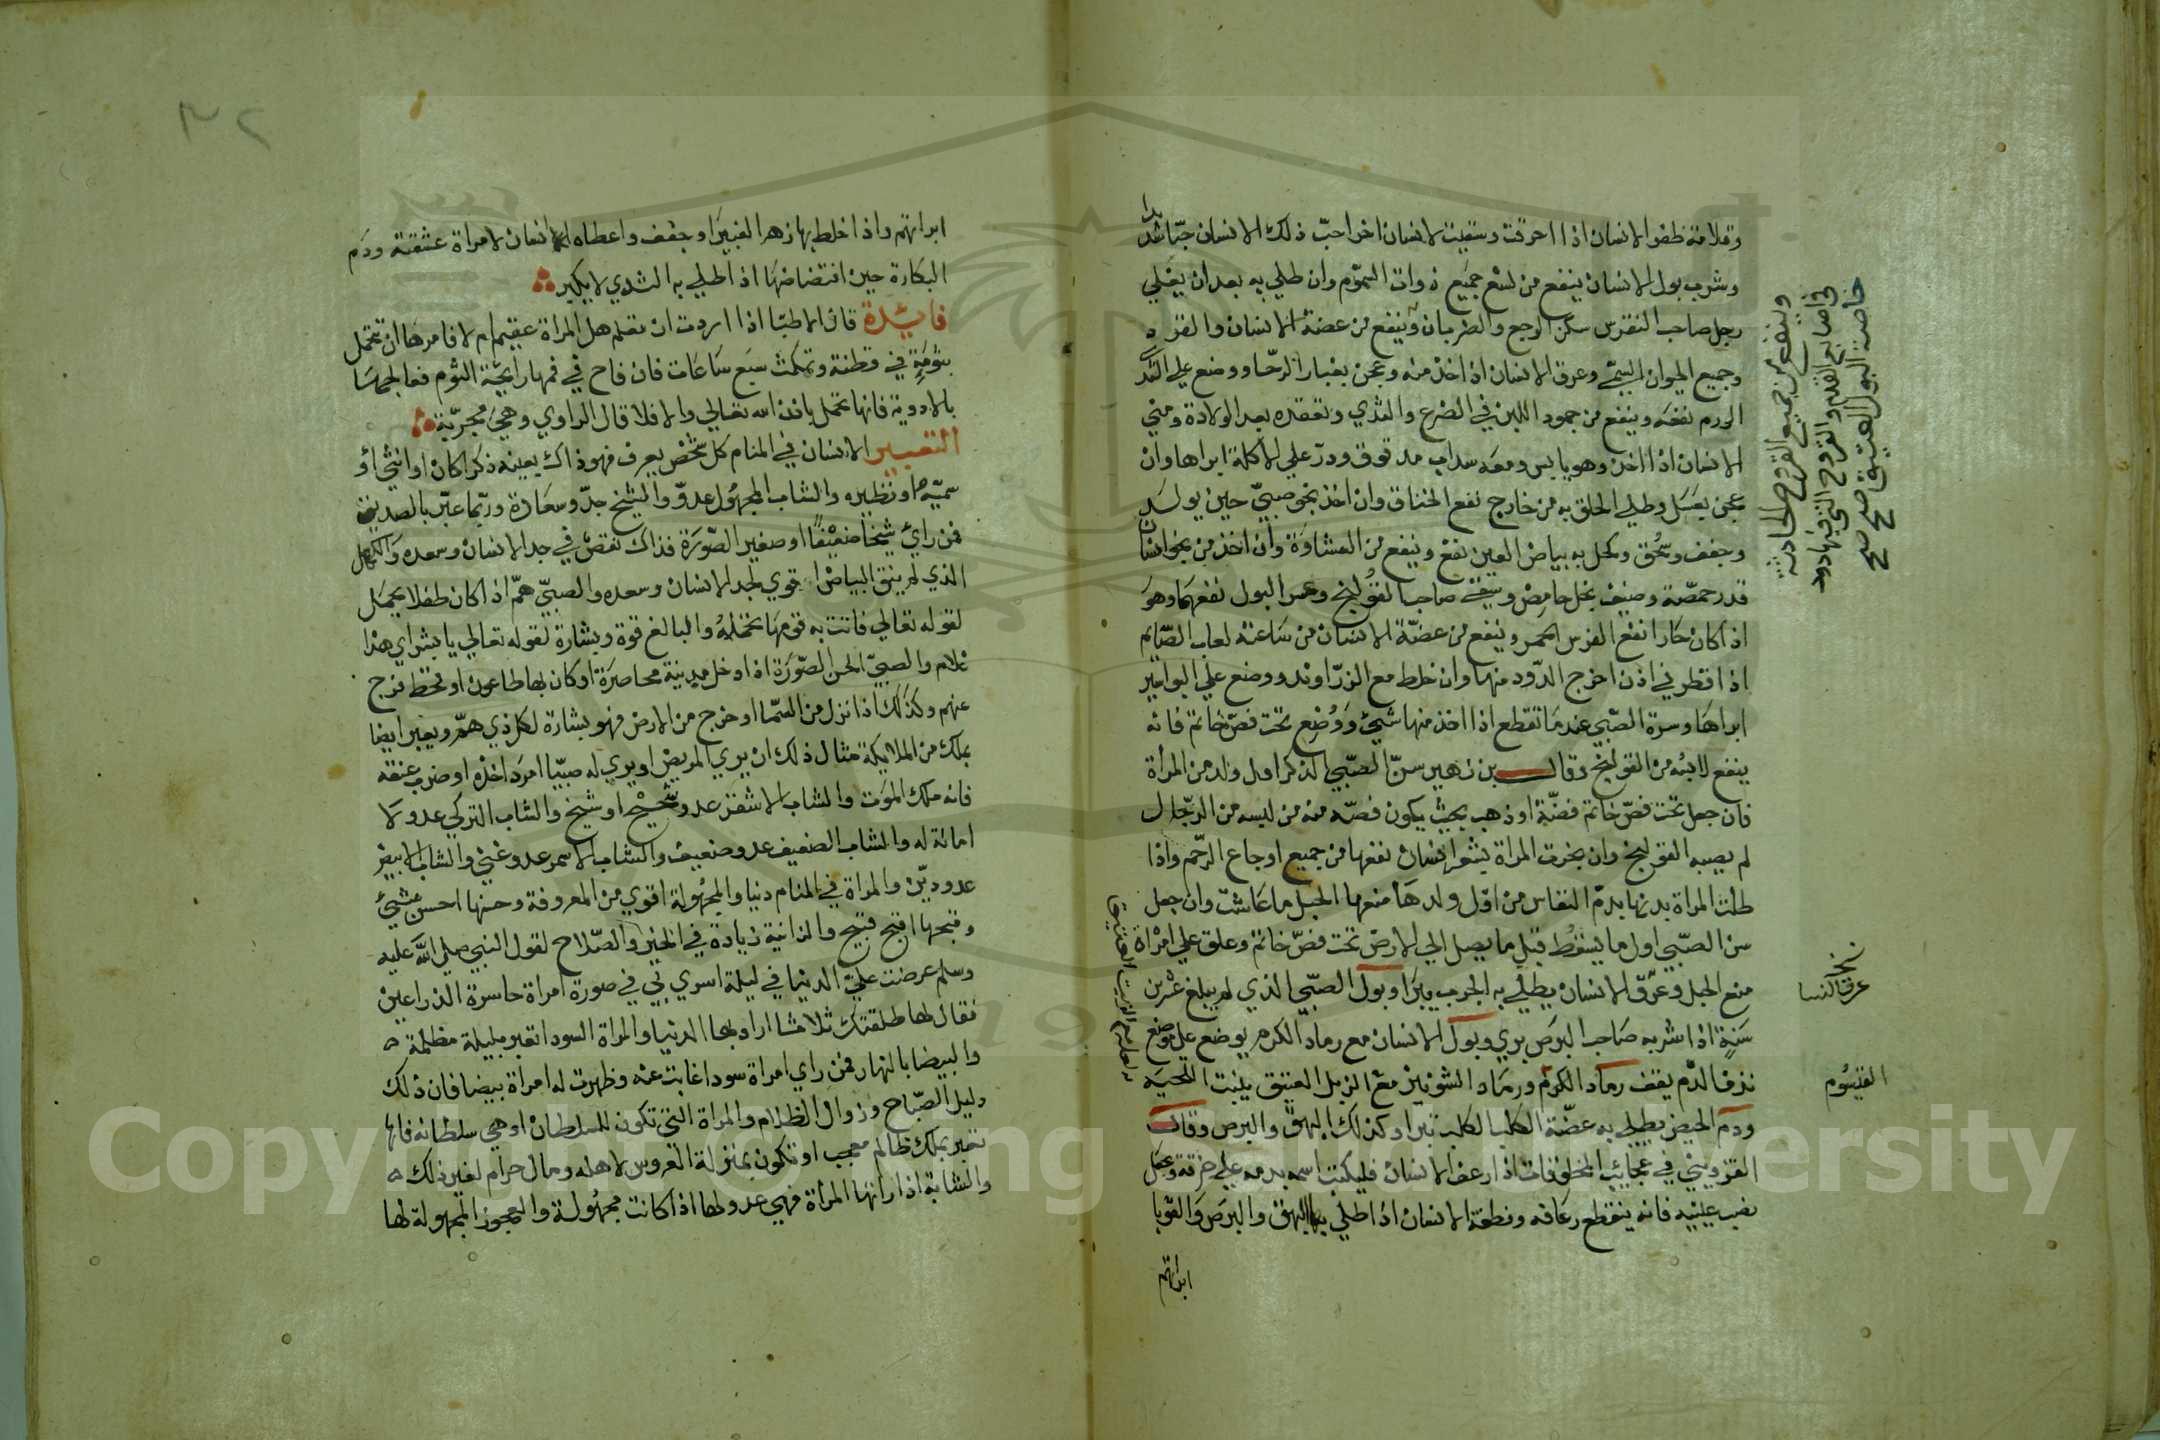 وقلامة ظفر الانسان اذا احرقت وسقيت لانسان اخر احبّ ذلك الانسان حبّا شديدا
وشرب بول الانسان ينفع من لسع جميع ذوات السموم وان طلي به بعد ان يغلي
رجل صاحب النقرس سكن الوجع والضربان وينفع من عضة الانسان والقرد
وجميع الحيوان السمي وعرق الانسان اذا اخذ منه وعجن بغبار الرحا ووضع علي الثدي
الورم نفعه وينفع من جمود اللبن في الضرع والثدي وتعقده بعد الولادة ومني
الانسان اذا اخذ وهو يابس ومعه سداب مدقوق وذر علي الاكلة ابراها وان
عجن بعسل وطلي الحلق به من خارج نفع الخناق وان اخذ نجو صبيّ حين يولد
وجفف وسحق وكحل به بياض العين نفع وينفع من الغشاوة وان اخذ من نجو انسان
قدر حمصة وضيف بخل حامض وسقي صاحب القولنج وعسر البول نفعهما وهو
اذا كان حارا نفع الفرس الحمر وينفع من عضّة الانسان من ساعته لعاب الصّايم
اذا قطر في اذن اخرج الدّود منها وان خلط مع الزراوند ووضع علي البواسير
ابراها وسرة الصّبي عندما تقطع اذا اخذ منها شيئ ووضع تحت فصّ خاتم فانه
ينفع لابسه من القولنج وقال بن زهير سنّ الصّبي الذكر اول ولد من المرأة
فان جعل تحت فصّ خاتم فضّة او ذهب بحيث يكون فصّه منه من لبسه من الرجال
لم يصبه القولنج وان بخرت المراة بشعر انسان نفعها من جميع اوجاع الرّحم واذا
طلت المراة بدنها بدم النفاس من اوّل ولدها منعها الحبل ما عاشت وان جعل
سن الصّبي اول ما يسقط قبل ما يصل الي الارض تحت فصّ خاتم وعلق علي امرأة
منع الحبل وعرق الانسان يطلي به الجرب يبرا وبول الصّبي الذي لم يبلغ عشرين
سنة اذا شربه صاحب البرص بري وبول الانسان مع رماد الكرم يوضع علي موضع
نزف الدّم يقف رماد الكرم ورماد الشونيز مع الزيل العتيق ينبت اللحية
ودم الحيض يطلي به عضّة الكلب الكلب تبرا وكذلك البهق والبرص وقال
القزويني في عجائب المخلوقات اذا رعف الانسان فليكتب اسمه بدمه علي خرقة ويجعل
نصب عينيه فانه ينقطع رعافه ونطفة الانسان اذا طلي بها البهق والبرص والقوبا
ابراتهم
خاصية البول العتيق صح صح
في اصابع القدم والقروح التي فيها دود
وينفع من جميع القروح الحادثة
عرق النسا
القيسوم
ابراتهم واذا خلط بها زهر الغبيرا وجفف واعطاه الانسان لامراة عشقته ودم
البكارة حين افتضاضها اذا طلي به الثدي لا يكبر
فايدة قال الاطبّا اذا اردت ان تعلم هل المراة عقيم ام لا فامرها ان تحتمل
بثومة في قطنة وتمكث سبع ساعات فان فاح في فمها رايحة الثوم فعالجها
بالادوية فانها تحمل باذن الله تعالي والا فلا قال الراوي وهي مجرّبة
التعبير الانسان في المنام كل شخص يعرف فهو ذاك بعينه ذكرا كان او انثي او
سميّه او نظيره والشاب المجهول عدوّ والشيخ جدّ وسعادة وربّما عبّر بالصديق
فمن راي شيخا ضعيفا او صغير الصّورة فذاك نقص في جد الانسان وسعده والكهل
الذي لم ينق البياض اقوي لجد الانسان وسعده والصبيّ همّ اذا كان طفلا يحمل
لقوله تعالي فاتت به قومها تحمله والبالغ قوة وبشارة لقوله تعالي يا بشراي هذا
غلام والصبيّ الحسن الصّورة اذا دخل مدينة محاصرة او كان بها طاعون او قحط فرج
عنهم وكذلك اذا نزل من السّما او خرج من الارض فهو بشارة لكل ذي همّ ويعبر ايضا
بملك من الملايكة مثال ذلك ان يري المريض او يري له صبيّا امرد اخذه او ضرب عنقه
فانه ملك الموت والشاب الاشقر عدو شحيح او شيخ والشاب التركي عدو لا
امانة له والشاب الضعيف عدو ضعيف والشاب الاسمر عدو غني والشاب الابيض
عدو ديّن والمراة في المنام دنيا والمجهولة اقوي من المعروفة وحسنها احسن شيئ
وقبحها اقبح قبيح والزانية زيادة في الخير والصّلاح لقول النبي صلي الله عليه
وسلم عرضت علي الدنيا في ليلة اسري بي في صورة امراة حاسرة الذراعين
فقال لها طلقتك ثلاثا اراد بها الدنيا والمراة السودا تعبر بليلة مظلمة
والبيضا بالنهار فمن راي امراة سودا غابت عنه وظهرت له امراة بيضا فان ذلك
دليل الصّباح وزوال الظلام والمراة التي تكون للسلطان او هي سلطانة فانها
تعبر بملك ظالم معجب او تكون بمنزلة العروس لاهله ومال حرام لغير ذلك
والشابة اذا راتها المرأة فهي عدو لها اذا كانت مجهولة والعجوز المجهولة لها
٣٢
Copyright © King Saud University